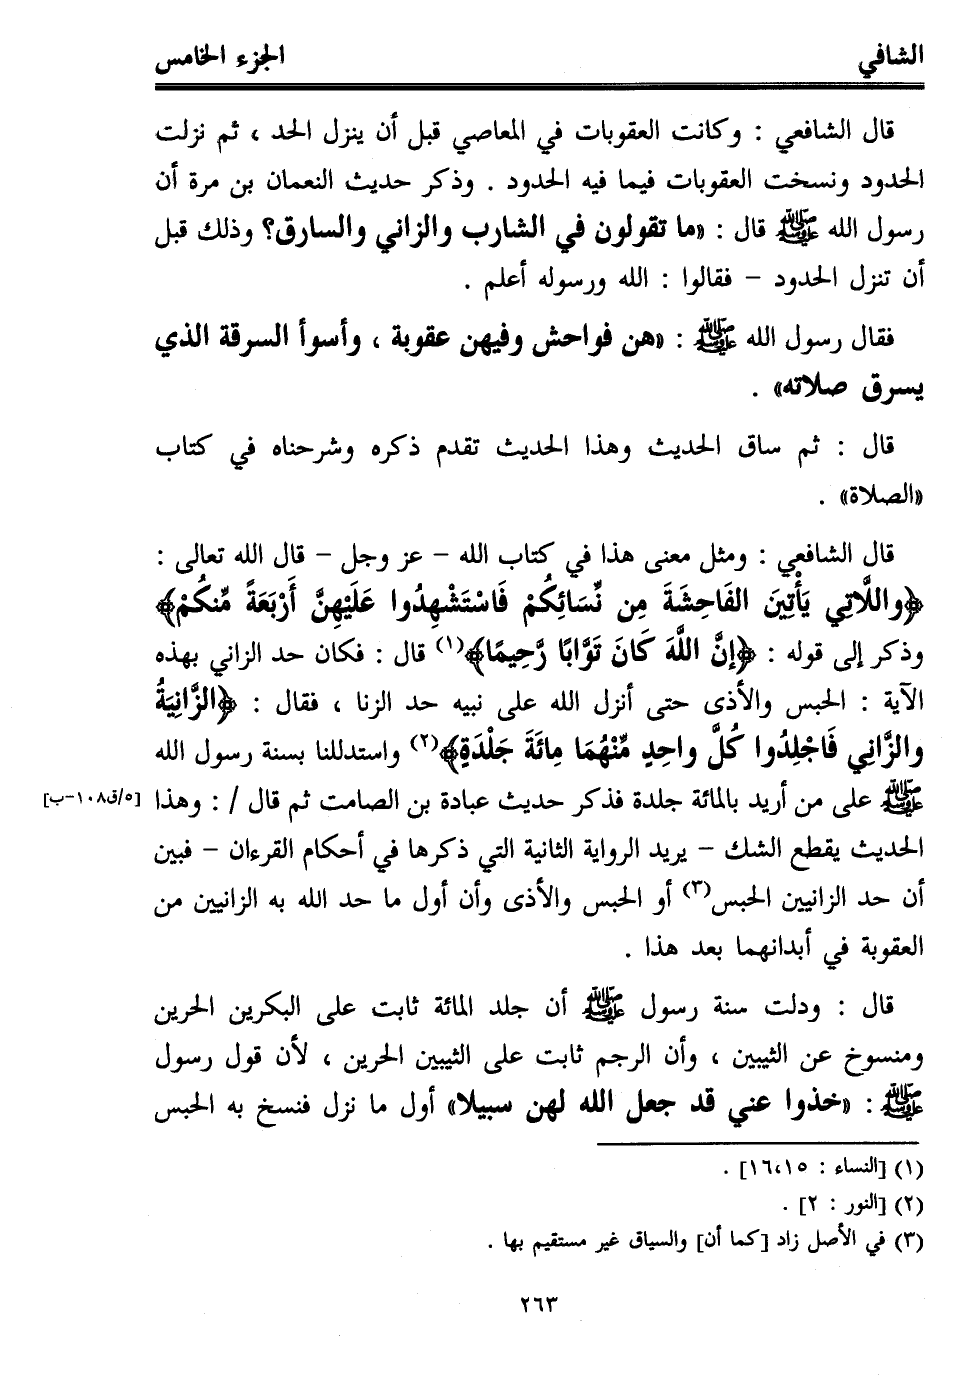 الشافي الجزء الخامس
قال الشافعي : وكانت العقوبات في المعاصي قبل أن ينزل الحد ، ثم نزلت
الحدود ونسخت العقوبات فيما فيه الحدود . وذكر حديث النعمان بن مرة أن
رسول الله ﷺ قال : «ما تقولون في الشارب والزاني والسارق؟ وذلك قبل
أن تنزل الحدود – فقالوا : الله ورسوله أعلم .
فقال رسول الله ﷺ : «هن فواحش وفيهن عقوبة ، وأسوأ السرقة الذي
يسرق صلاته» .
قال : ثم ساق الحديث وهذا الحديث تقدم ذكره وشرحناه في كتاب
«الصلاة» .
قال الشافعي : ومثل معنى هذا في كتاب الله – عز وجل – قال الله تعالى :
﴿واللَّاتِي يَأْتِينَ الفَاحِشَةَ مِن نِّسَائِكُمْ فَاسْتَشْهِدُوا عَلَيْهِنَّ أَرْبَعَةً مِّنكُمْ﴾
وذكر إلى قوله : ﴿إنَّ اللَّهَ كَانَ تَوَّابًا رَّحِيمًا﴾(١) قال : فكان حد الزاني بهذه
الآية : الحبس والأذى حتى أنزل الله على نبيه حد الزنا ، فقال : ﴿الزَّانِيَةُ
والزَّانِي فَاجْلِدُوا كُلَّ واحِدٍ مِّنْهُمَا مِائَةَ جَلْدَةٍ﴾(٢) واستدللنا بسنة رسول الله
ﷺ على من أريد بالمائة جلدة فذكر حديث عبادة بن الصامت ثم قال / : وهذا [٥/ق١٠٨-ب]
الحديث يقطع الشك – يريد الرواية الثانية التي ذكرها في أحكام القرءان – فبين
أن حد الزانيين الحبس(٣) أو الحبس والأذى وأن أول ما حد الله به الزانيين من
العقوبة في أبدانهما بعد هذا .
قال : ودلت سنة رسول ﷺ أن جلد المائة ثابت على البكرين الحرين
ومنسوخ عن الثيبين ، وأن الرجم ثابت على الثيبين الحرين ، لأن قول رسول
ﷺ : «خذوا عني قد جعل الله لهن سبيلا» أول ما نزل فنسخ به الحبس
(١) [النساء : ١٦،١٥] .
(٢) [النور : ٢] .
(٣) في الأصل زاد [كما أن] والسياق غير مستقيم بها .
٢٦٣